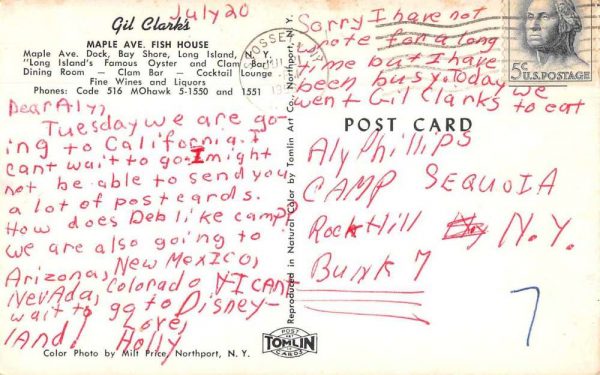 July 20
Gil Clark's
MAPLE AVE. FISH HOUSE
Maple Ave. Dock, Bay Shore, Long Island, N. Y.
"Long Island's Famous Oyster and Clam Bar"
Dining Room — Clam Bar — Cocktail Lounge
Fine Wines and Liquors
Phones: Code 516 MOhawk 5-1550 and 1551
Dear Aly,
Tuesday we are go-
ing to California. I
cant wait to go. I might
not be able to send you
a lot of postcards.
How does Deb like camp?
we are also going to
Arizona, New Mexico,
Nevada, Colorado I can't
wait to go to Disney-
land!
Love,
Holly
Color Photo by Milt Price, Northport, N. Y.
Reproduced in Natural Color by Tomlin Art Co., Northport, N. Y.
POST
TOMLIN
CARDS
Sorry I have not
wrote for a long
time but I have
been busy. Today we
went Gil Clarks to eat
5¢ U.S. POSTAGE
POST CARD
Aly Phillips
CAMP SEQUOIA
Rock Hill N.Y.
Bunk 7
7